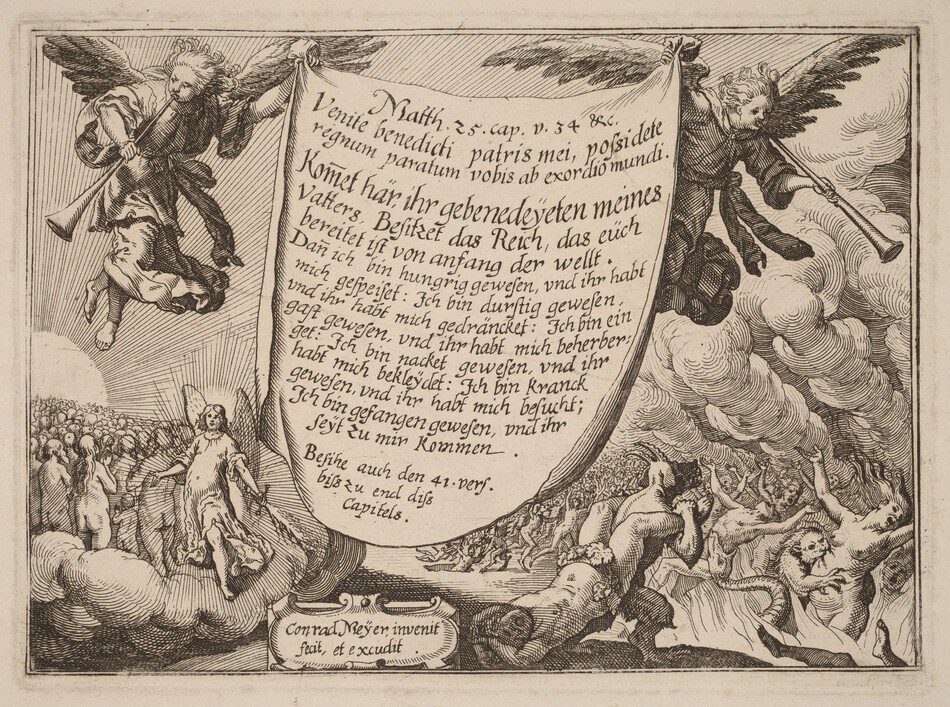 Matth. 25. cap. v. 34 &c.
Venite benedicti patris mei, possidete
regnum paratum vobis ab exordio mundi.
Kom̄et här ihr gebenedeÿeten meines
Vatters, Besitzet das Reich, das eüch
bereitet ist von anfang der wellt.
Dan̄ ich bin hungrig gewesen, vnd ihr habt
mich gespeiset: Ich bin durstig gewesen,
vnd ihr habt mich gedräncket: Ich bin ein
gast gewesen, vnd ihr habt mich beherber:
get: Ich bin nacket gewesen, vnd ihr
habt mich bekleÿdet: Ich bin kranck
gewesen, vnd ihr habt mich besucht;
Ich bin gefangen gewesen, vnd ihr
seÿt zu mir kommen.
Besihe auch den 41. vers.
biss zu end diss
Capitels.
Conrad Meÿer, invenit
fecit, et excudit.